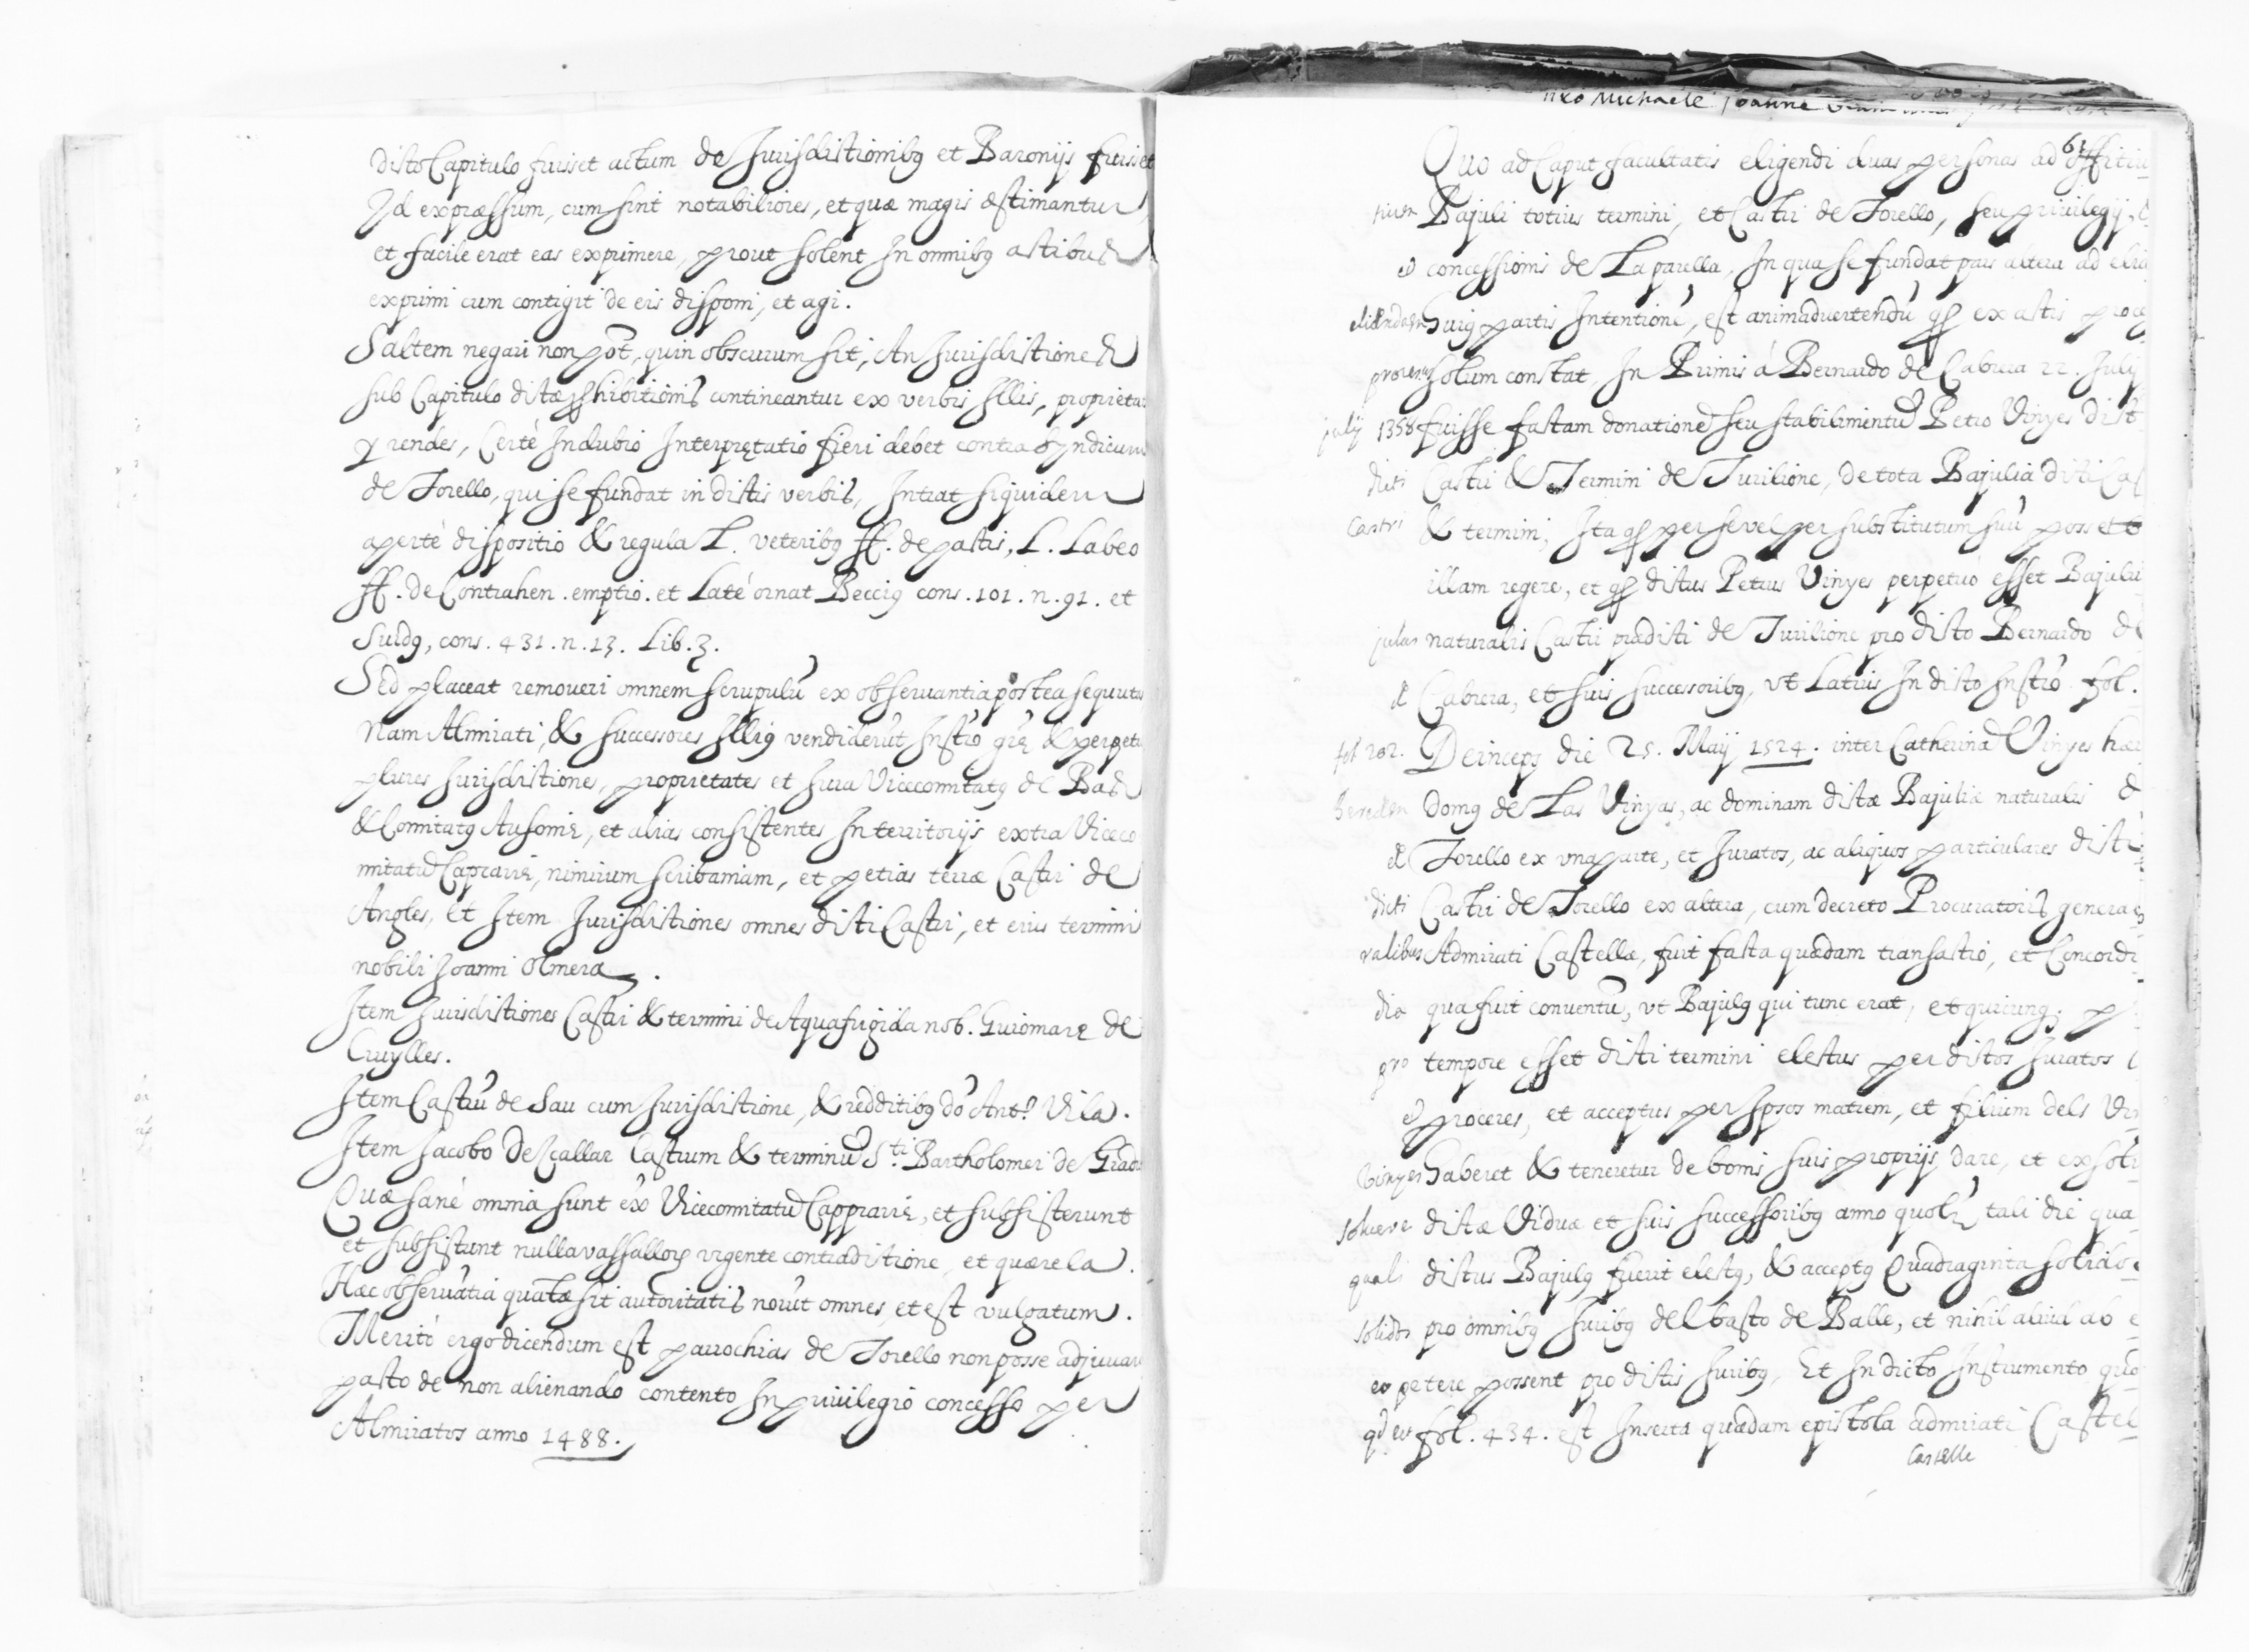 dicto Capitulo fuisset actum de Jurisdictionibꝰ et Baronijs fuisset
Id expræssum, cum sint notabiliores, et quæ magis æstimantur,
et facile erat eas exprimere, prout solent In omnibꝰ actibus
exprimi cum contigit de eis disponi, et agi.
Saltem negari non põt, quin obscurum sit, An Jurisdictiones
sub Capitulo dictæ ꝓhibitionis contineantur ex verbis Illis, proprieta:
y rendes, Certè Indubio Interprętatio fieri debet contra Syndicum
de Torello, qui se fundat in dictis verbis, Intrat siquidem
apertè dispositio & regula L. veteribꝰ ff. de pactis, L. Labeo
ff. de Contrahen. emptio. et Latè ornat Decciꝰ cons. 101. n. 91. et
Surdꝰ, cons. 431. n. 13. Lib. 3.
Sed placeat removeri omnem scrupulũ ex observantia postea sequuta
Nam Almirati, & successores Illiꝰ vendiderũt Instrõ
plures Jurisdictiones, proprietates et Jura Vicecomitatꝰ de Bas
& Comitatꝰ Ausonię, et alias consistentes In territorijs extra Viceco
mitatũ Caprarię, nimirum scribaniam, et petias terræ Castri de
Angles, et Item Jurisdictiones omnes dicti Castri, et eius termini
nobili Joanni Olmera.
Item Jurisdictiones Castri & termini de Aquafrigida nob. Guiomarę de
Cruylles.
Item Castrũ de Sau cum Jurisdictione, & redditibꝰ dõ Ant.º Vila.
Item Jacobo Descallar Castrum & terminũ S.ti Bartholomei de
Quæ sanè omnia sunt ex Vicecomitatũ Capprarię, et subsisterunt
et subsistunt nulla vassalloꝝ vigente contradictione, et quærela.
Hæc observãtia quãtæ sit autoritatis novũt omnes, et est vulgatum.
Meritò ergo dicendum est parrochias de Torello non posse adjuvari
pacto de non alienando contento In privilegio concesso per
Almiratos anno 1488.
Michaele Joanne
61
Quo ad Caput facultatis eligendi duas personas ad offitiu
tium Bajuli totius termini, et Castri de Torello, seu privilegij, &
et concessionis de La parella, In qua se fundat pars altera ad elid
elidendam huiꝰ partis Intentionẽ, est animadvertendũ qꝫ ex actis proce
processꝰ solum constat, In Primis à Bernardo de Cabrera 22. July
july 1358 fuisse factam donationẽ seu stabilimentũ Petro Vinyes dict
dicti Castri & Termini de Turilione, de tota Bajulia dicti Cas
Castri & termini, Ita qꝫ per se vel per substitutum suũ posset
illam regere, et qꝫ dictus Petrus Vinyes perpetuò esset Bajulu
julus naturalis Castri prædicti de Turilione pro dicto Bernardo de
de Cabrera, et suis successoribꝰ, vt Latius In dicto Instrõ fol.
fol 202. Deinceps die 25. Maij 1524. inter Catherinã Vinyes hær
heredem Domꝰ de Las Vinyas, ac dominam dictæ Bajuliæ naturalis de
de Torello ex vna parte, et Juratos, ac aliquos particulares dicti
dicti Castri de Torello ex altera, cum decreto Procuratoris genera
ralibus Admirati Castellæ, fuit facta quædam transactio, et Concordi
dia qua fuit conventũ, vt Bajulꝰ qui tunc erat, et quicunqꝫ p
pro tempore esset dicti termini electus per dictos Juratos
et proceres, et acceptus per Ipsos matrem, et filium dels Vi
Vinyes haberet & teneretur de bonis suis proprijs dare, et exsol
solvere dictæ Viduæ et suis successoribꝰ anno quolt tali die qua
quali dictus Bajulꝰ fuerit electꝰ, & acceptꝰ Quadraginta solidos
solidos pro omnibꝰ Juribꝰ del basto de Balle, et nihil aliud ab e
eo petere possent pro dictis Juribꝰ, Et In dicto Instrumento quo
fol. 434. est Inserta quædam epistola admirati Castel
Castelle